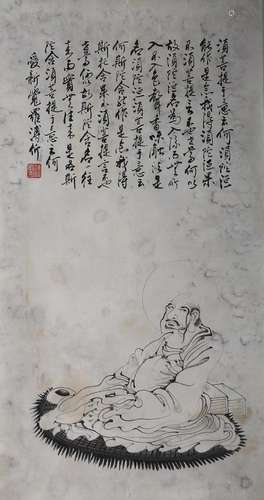 須菩提於意云何須陀洹
能作是念我得須陀洹果
不須菩提言不也世尊何以
故須陀洹名為入流而無所
入不入色聲香味觸法是
名須陀洹須菩提於意云
何斯陀含能作是念我得
斯陀含果不須菩提言不也
世尊何以故斯陀含名一往
來而實無往來是名斯
陀含須菩提於意云何
愛新覺羅溥